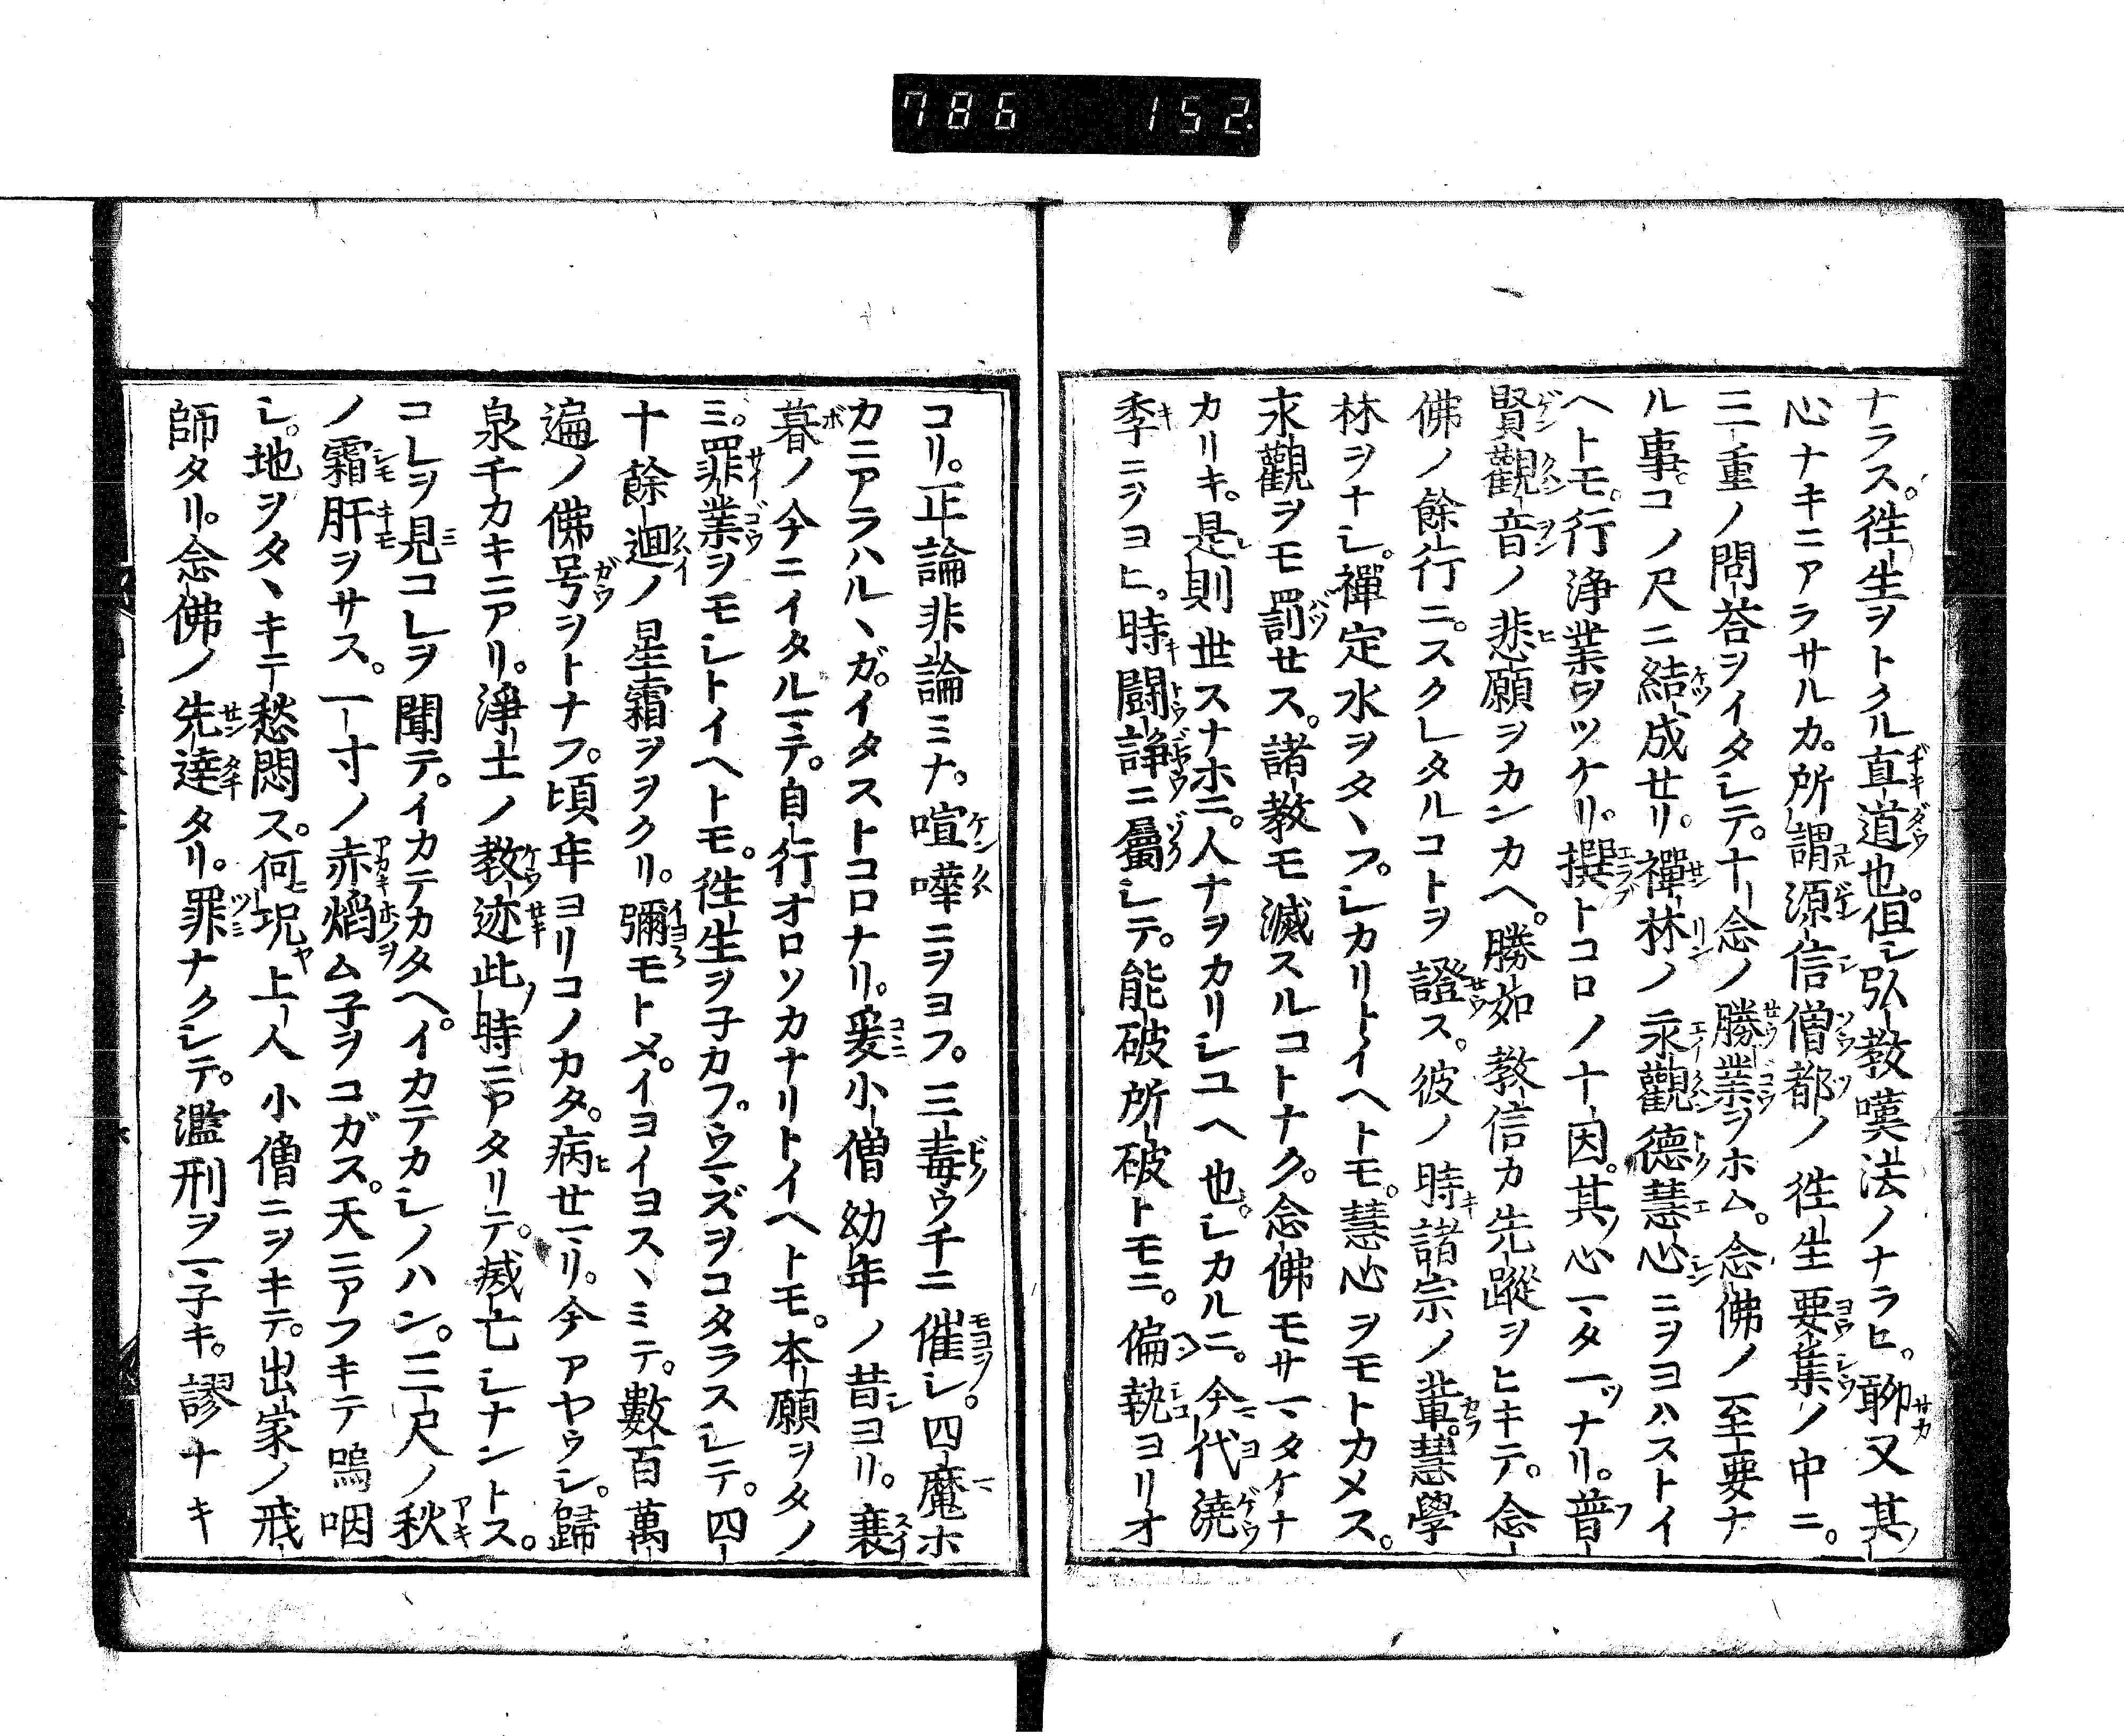 786 152
ナラス。徃生ヲトクル直道也。但シ弘教嘆法ノナラヒ。聊又其
心ナキニアラサルカ。所謂源信僧都ノ徃生要集ノ中ニ。
三重ノ問荅ヲイタシテ。十念ノ勝業ヲホム。念佛ノ至要ナ
ル事。コノ尺ニ結成セリ。禪林ノ永觀德慧心ニヲヨハストイ
ヘトモ。行浄業ヲツケリ。撰トコロノ十因。其心マタ一ツナリ。普
賢觀音ノ悲願ヲカンカヘ。勝如教信カ先蹤ヲヒキテ。念
佛ノ餘行ニ。スクレタルコトヲ證ス。彼ノ時諸宗ノ輩。慧學
林ヲナシ。禪定水ヲタヽフ。シカリトイヘトモ。慧心ヲモトカメス。
永觀ヲモ罰セス。諸教モ滅スルコトナク。念佛モサマタケナ
カリキ。是則世スナホニ。人ナヲカリシユヘ也。シカルニ。今代澆
季ニヲヨヒ。時闘諍ニ屬シテ。能破所破トモニ。偏執ヨリオ
コリ。正論非論ミナ。喧嘩ニヲヨフ。三毒ウチニ催シ。四魔ホ
カニアラハルヽガ。イタストコロナリ。爰小僧幼年ノ昔ヨリ。衰
暮ノ今ニイタルマテ。自行オロソカナリトイヘトモ。本願ヲタノ
ミ。罪業ヲモシトイヘトモ。徃生ヲ子カフ。ウマズヲコタラスシテ。四
十餘廻ノ星霜ヲヲクリ。彌モトメ。イヨイヨスヽミテ。數百萬
遍ノ佛号ヲトナフ。頃年ヨリコノカタ。病せマリ。今アヤウシ。歸
泉チカキニアリ。淨土ノ教迹此時ニアタリテ。滅亡シナントス。
コレヲ見コレヲ聞テ。イカテカタヘ。イカテカシノハン。三尺ノ秋
ノ霜肝ヲサス。一寸ノ赤焰ム子ヲコガス。天ニアフキテ嗚咽
シ。地ヲタヽキテ愁悶ス。何况上人小僧ニヲキテ。出家ノ戒
師タリ。念佛ノ先達タリ。罪ナクシテ。濫刑ヲマ子キ。謬ナキ